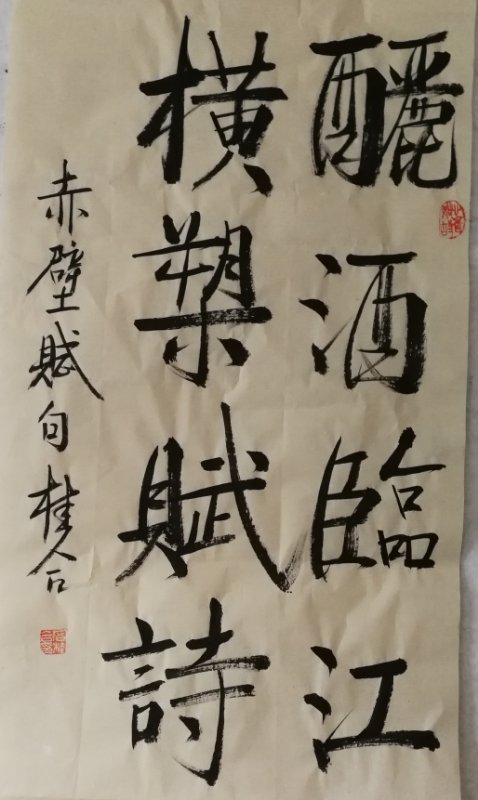 釃酒臨江
橫槊賦詩
赤壁賦句 桂合